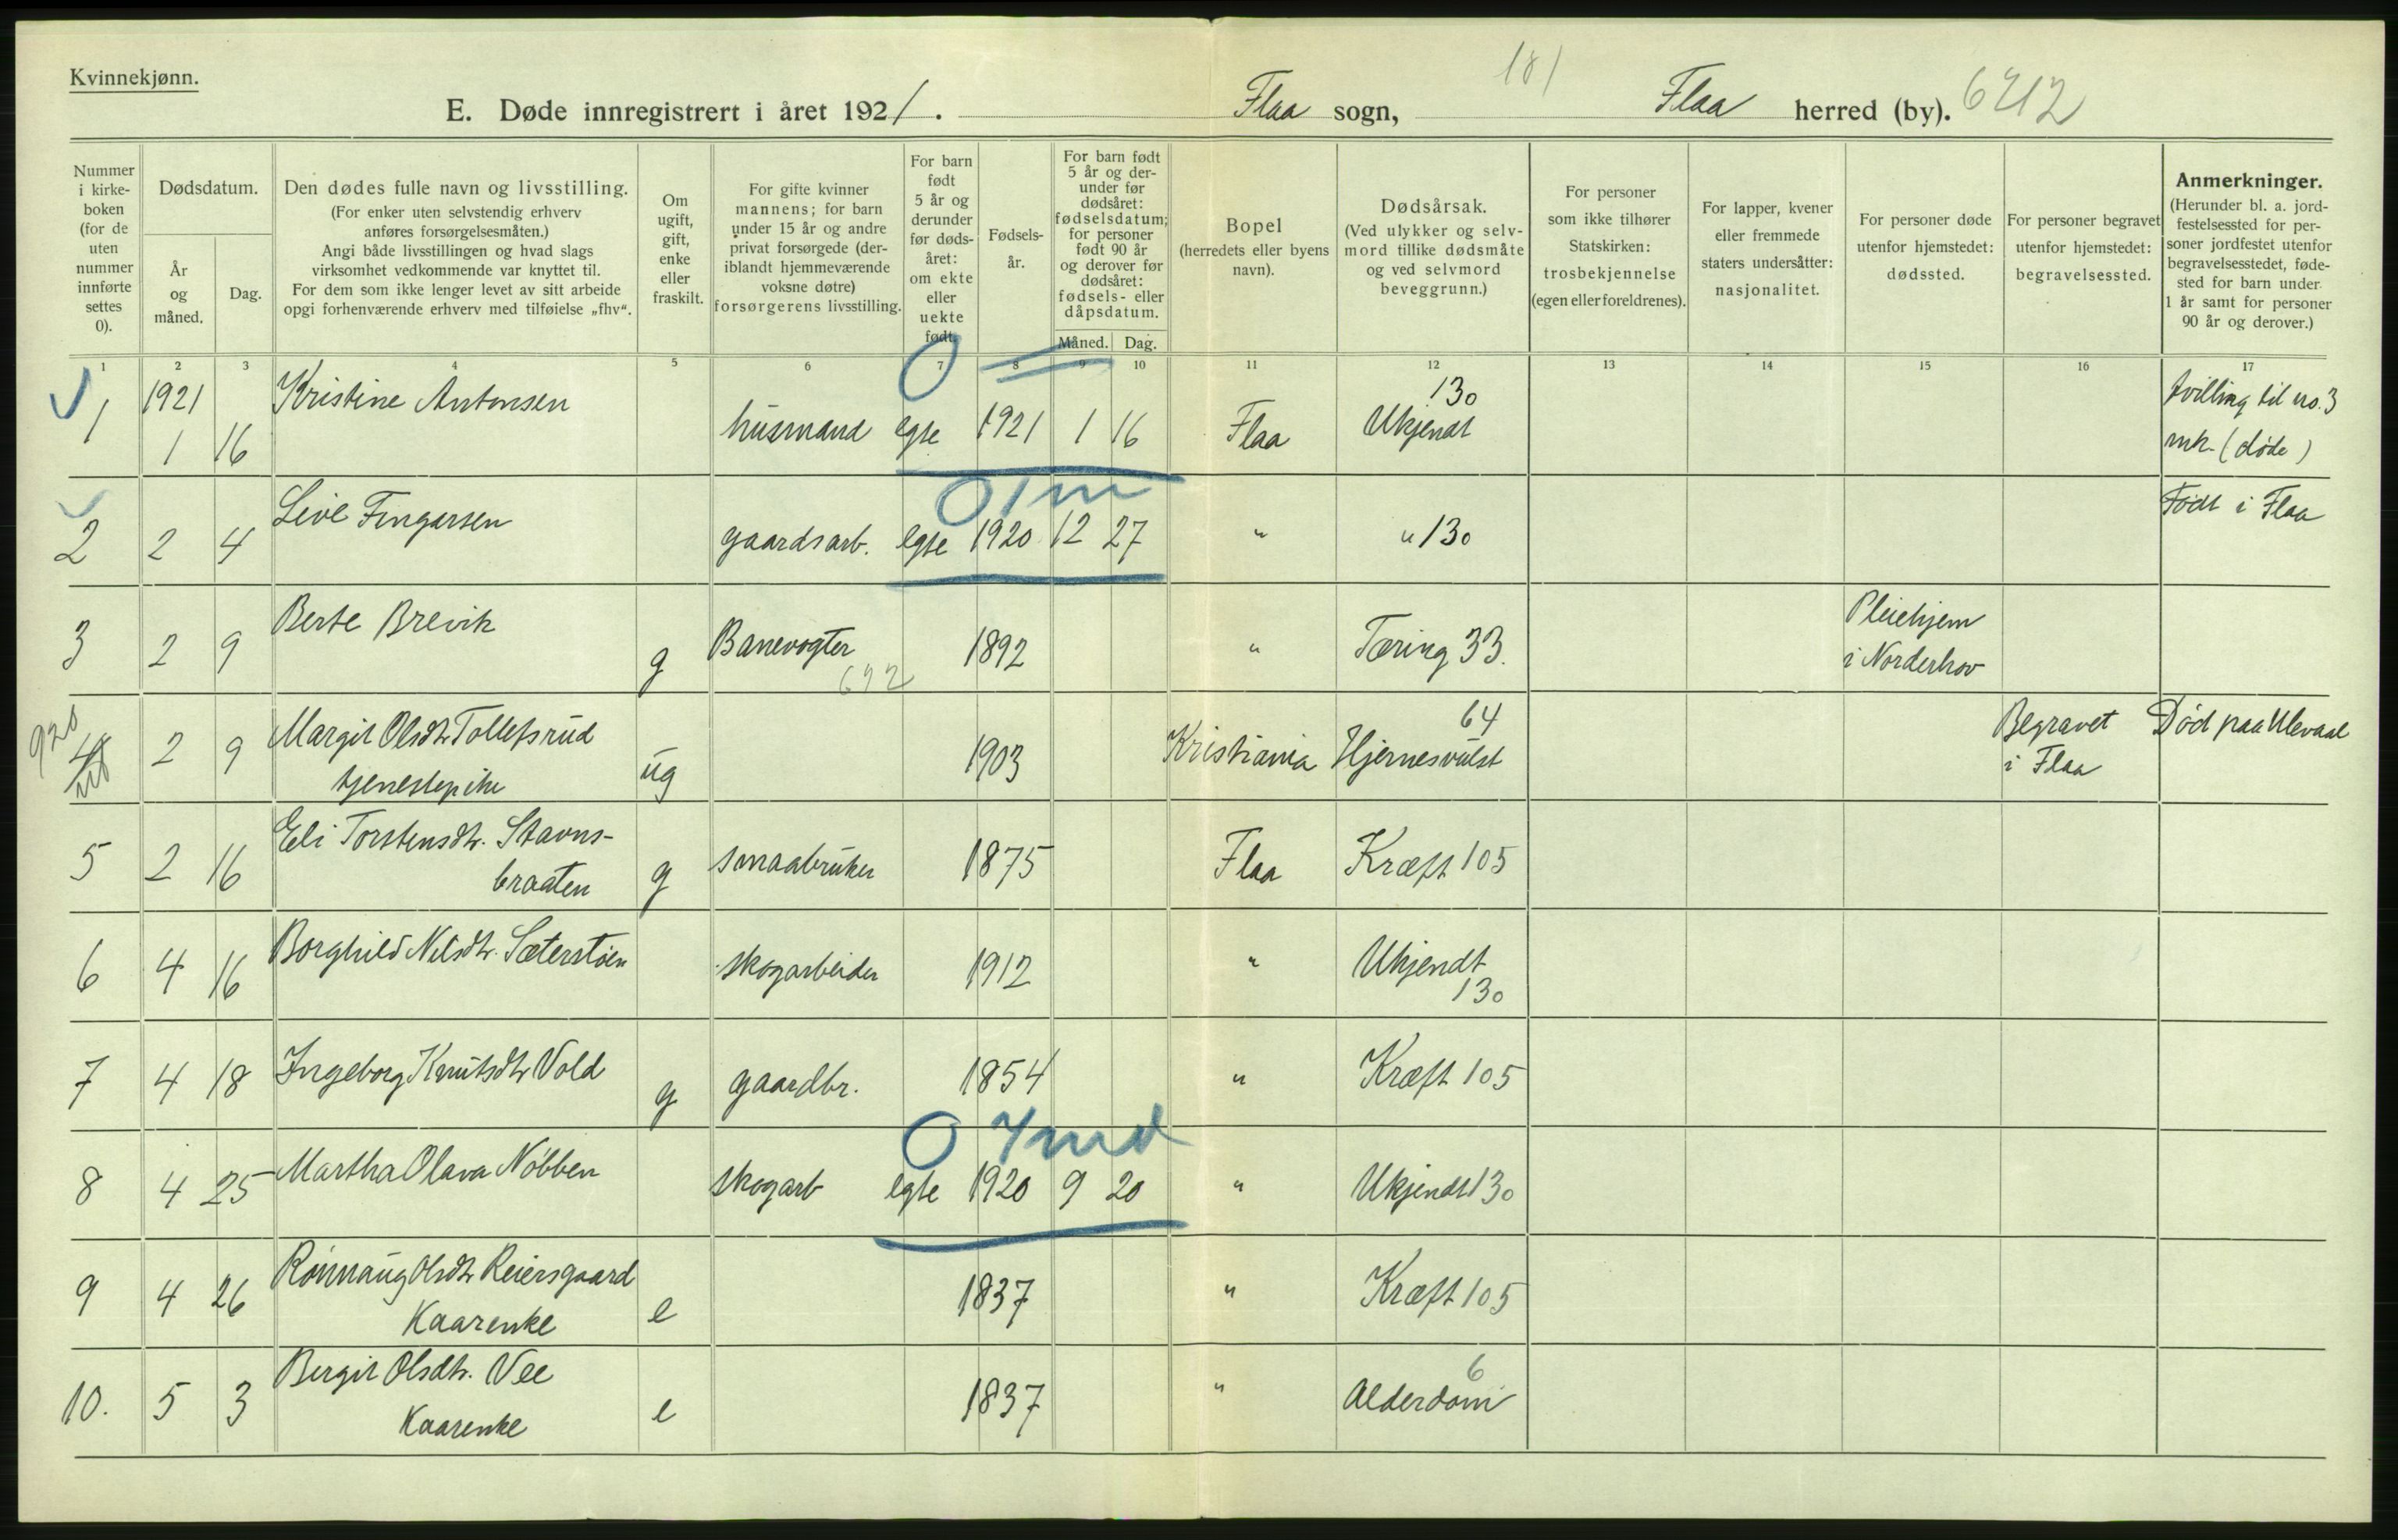 Kvinnekjønn.
181
E. Døde innregistrert i året 1921. Flaa sogn, Flaa herred (by). 6212
Nummer i kirke- boken (for de uten nummer innførte settes 0).
Dødsdatum.
År og måned.
Dag.
Den dødes fulle navn og livsstilling.
(For enker uten selvstendig erhverv anføres forsørgelsesmåten.)
Angi både livsstillingen og hvad slags virksomhet vedkommende var knyttet til.
For dem som ikke lenger levet av sitt arbeide opgi forhenværende erhverv med tilføielse „fhv“.
Om ugift, gift, enke eller fraskilt.
For gifte kvinner mannens; for barn under 15 år og andre privat forsørgede (der- iblandt hjemmeværende voksne døtre) forsørgerens livsstilling.
For barn født 5 år og derunder før døds- året: om ekte eller uekte født.
Fødsels- år.
For barn født 5 år og der- under før dødsåret: fødselsdatum; for personer født 90 år og derover før dødsåret: fødsels- eller dåpsdatum.
Måned. Dag.
Bopel (herredets eller byens navn).
Dødsårsak.
(Ved ulykker og selv- mord tillike dødsmåte og ved selvmord beveggrunn.)
For personer som ikke tilhører Statskirken: trosbekjennelse (egen eller foreldrenes).
For lapper, kvener eller fremmede staters undersåtter: nasjonalitet.
For personer døde utenfor hjemstedet: dødssted.
For personer begravet utenfor hjemstedet: begravelsessted.
Anmerkninger.
(Herunder bl. a. jord- festelsessted for per- soner jordfestet utenfor begravelsesstedet, føde- sted for barn under 1 år samt for personer 90 år og derover.)
1 2 3 4 5 6 7 8 9 10 11 12 13 14 15 16 17
0
1 1921 1 16 Kristine Antonsen husmand egte 1921 1 16 Flaa Ukjendt 130 tvilling til no. 3 mk. (døde)
0 1 m
2 2 4 Live Fingarsen gaardsarb. egte 1920 12 27 " " 130 Født i Flaa
3 2 9 Berte Brevik g Banevogter 692 1892 " Tæring 33. Pleiehjem i Norderhov
920
4 2 9 Margit Olsdtr Tollefsrud tjenestepike ug 1903 Kristiania Hjernesvulst 64 Begravet i Flaa Død paa Ulevaal
5 2 16 Eli Torstensdtr. Stavns- braaten g smaabruker 1875 Flaa Kræft 105
6 4 16 Borghild Nilsdtr. Sæterstøen skogarbeider 1912 " Ukjendt 130
7 4 18 Ingeborg Knutsdtr Vold g gaardbr. 1854 " Kræft 105
0 7 md
8 4 25 Martha Olava Nøbben skogarb egte 1920 9 20 " Ukjendt 130
9 4 26 Rønnaug Olsdtr Reiersgaard Kaarenke e 1837 " Kræft 105
10. 5 3 Bergit Olsdtr. Vee Kaarenke e 1837 " Alderdom 6